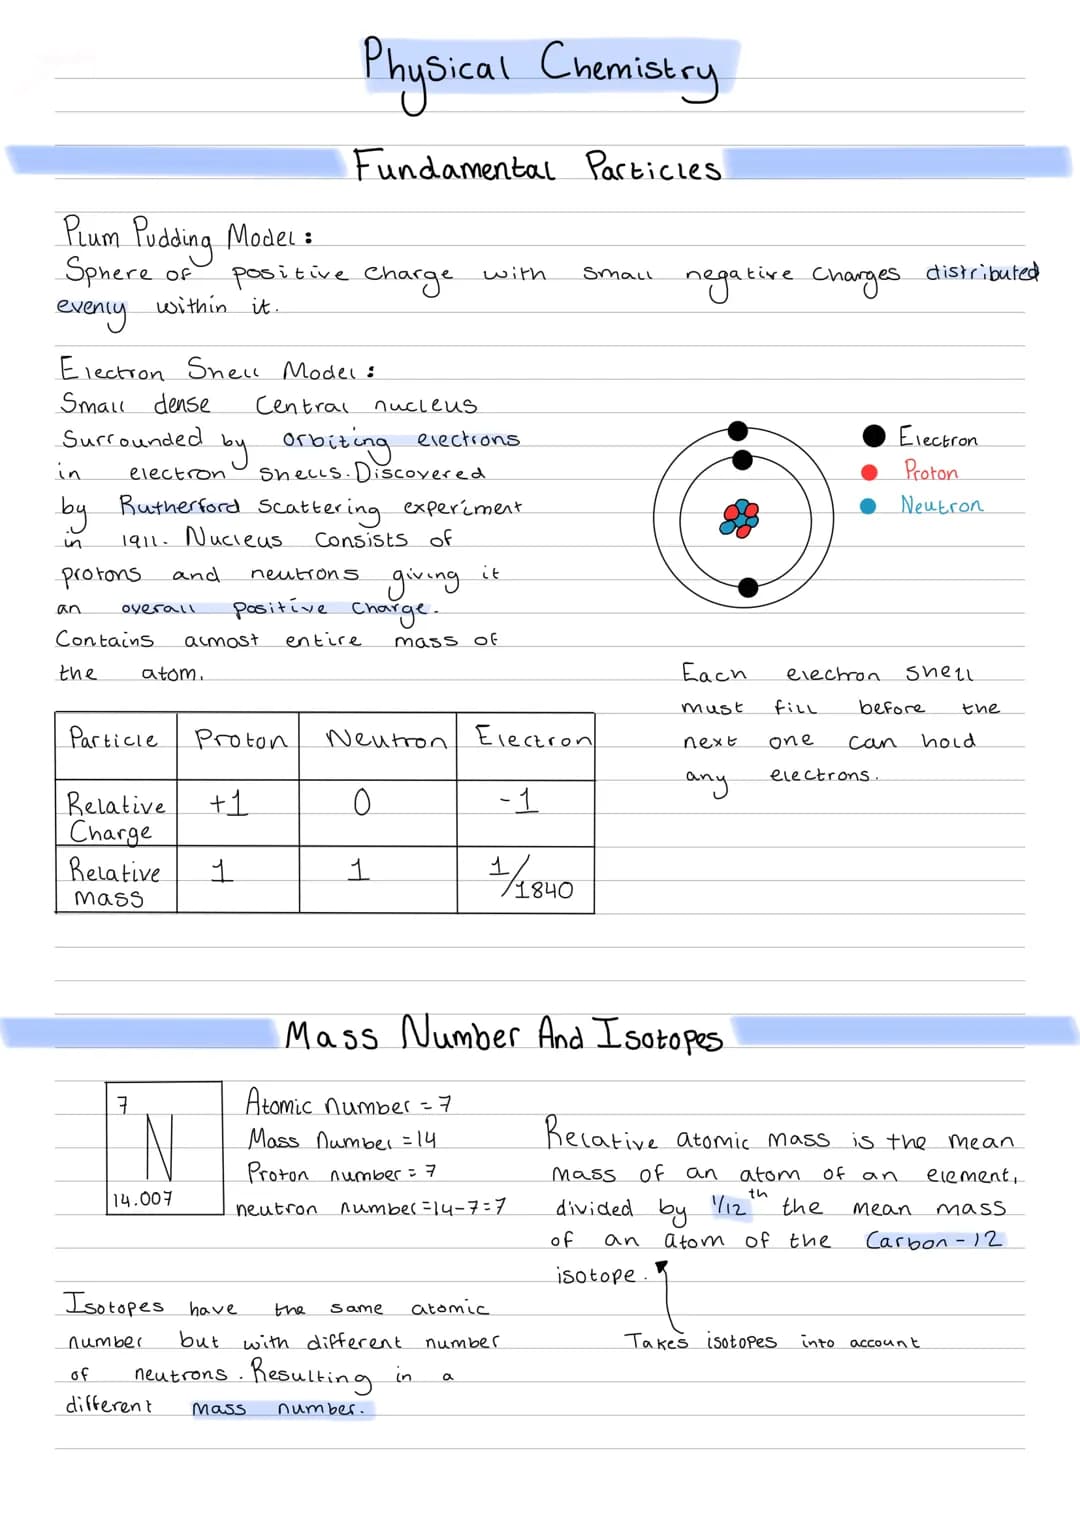 Physical Chemistry
Fundamental Particles
Plum Pudding Model:
Sphere of positive charge with small negative charges distributed
evenly within it.
Electron Shell Model:
Small dense Central nucleus
Surrounded by orbiting electrons
in electron shells. Discovered
by Rutherford Scattering experiment
in 1911. Nucleus Consists of
protons and neutrons giving it
an overall positive charge.
Contains almost entire mass of
the atom.
Electron
Proton
Neutron
Each electron shell
must fill before the
next one can hold
any electrons.
Particle Proton Neutron Electron
Relative Charge +1 0 -1
Relative mass 1 1 1/1840
Mass Number And Isotopes
7
N
14.007
Atomic number = 7
Mass Number = 14
Proton number = 7
neutron number = 14-7=7
Relative atomic mass is the mean
mass of an atom of an element,
divided by 1/12th the mean mass
of an atom of the Carbon-12
isotope.
Takes isotopes into account
Isotopes have the same atomic
number but with different number
of neutrons. Resulting in a
different mass number.